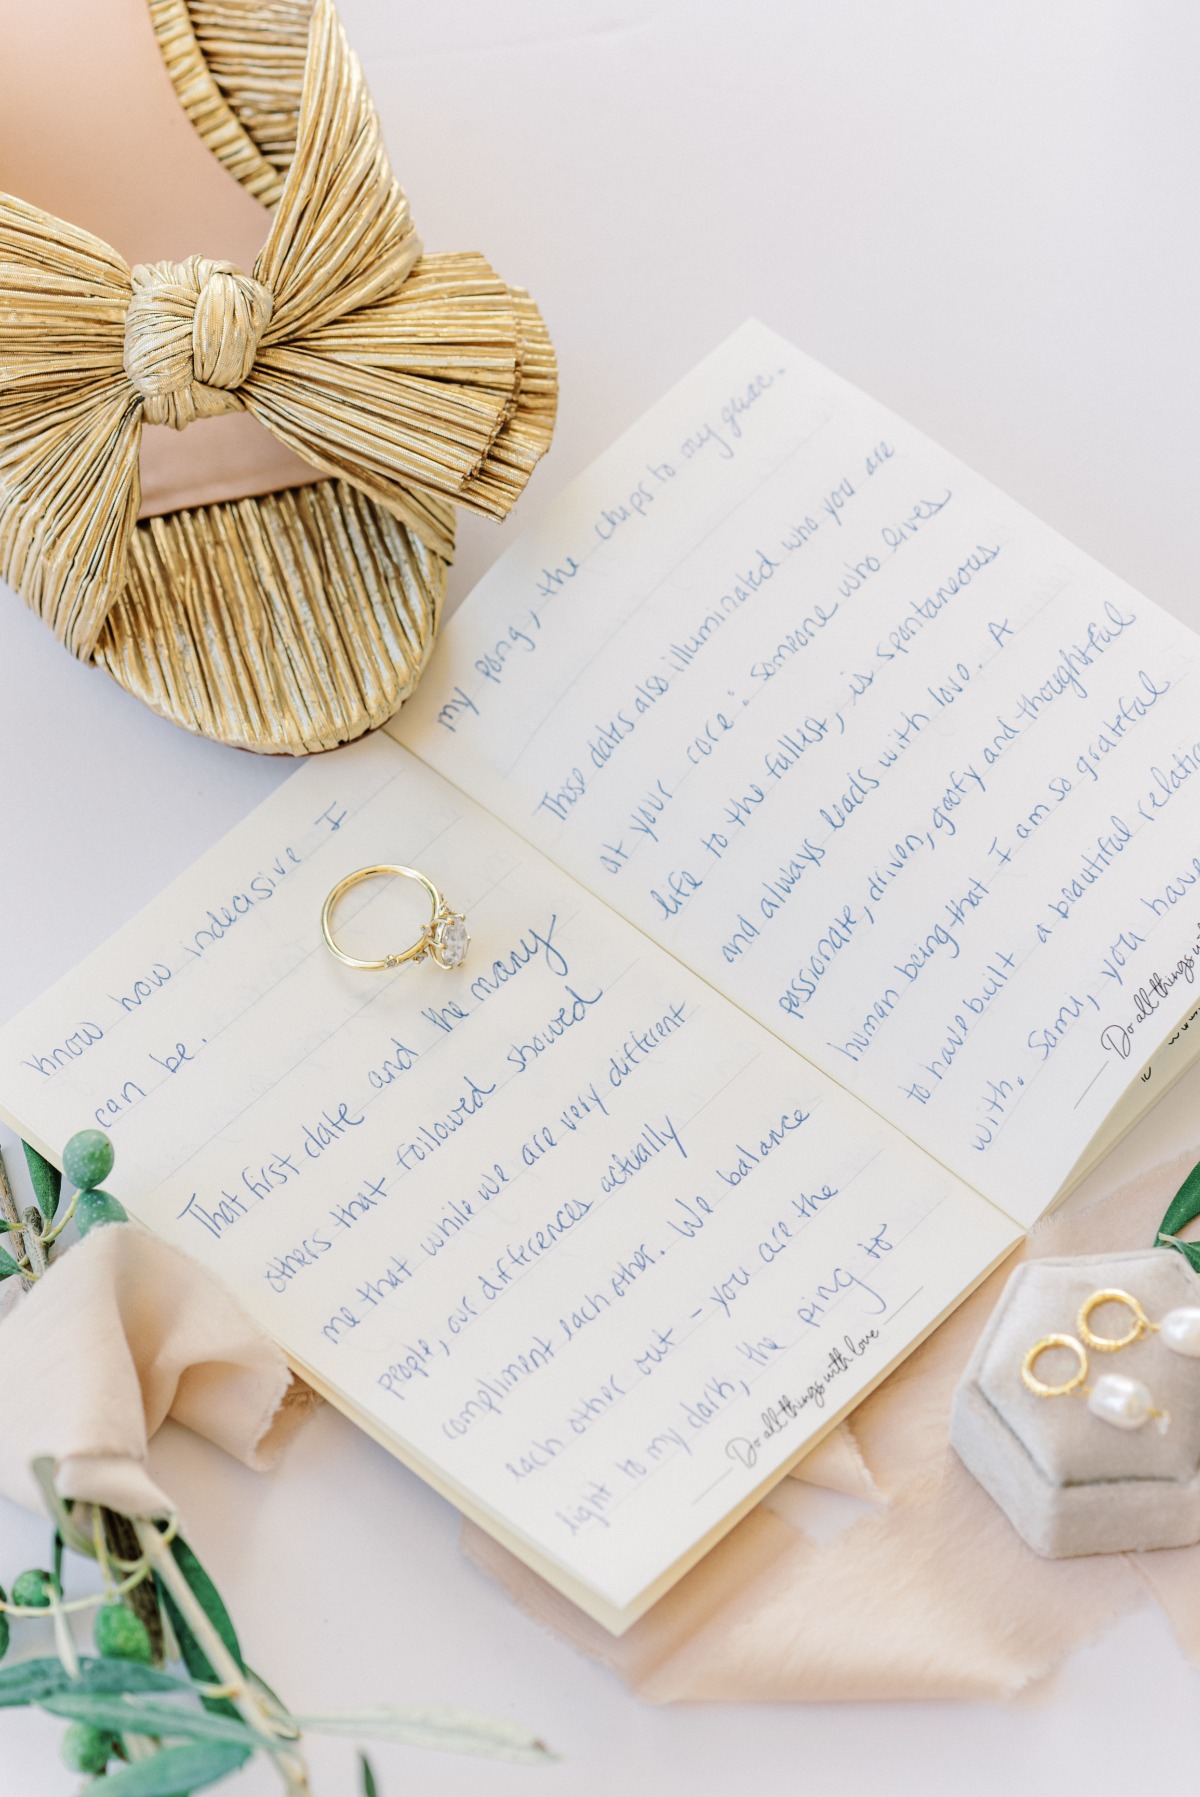 know how indecisive I
can be.
That first date and the many
others that followed showed
me that while we are very different
people, our differences actually
compliment each other. We balance
each other out - you are the
light to my dark, the ping to
Do all things with love
my pong, the chips to my guac.
Those dates also illuminated who you are
at your core: someone who lives
life to the fullest, is spontaneous
and always leads with love. A
passionate, driven, goofy and thoughtful
human being that I am so grateful
to have built a beautiful
with. Samu, you have
Do all things